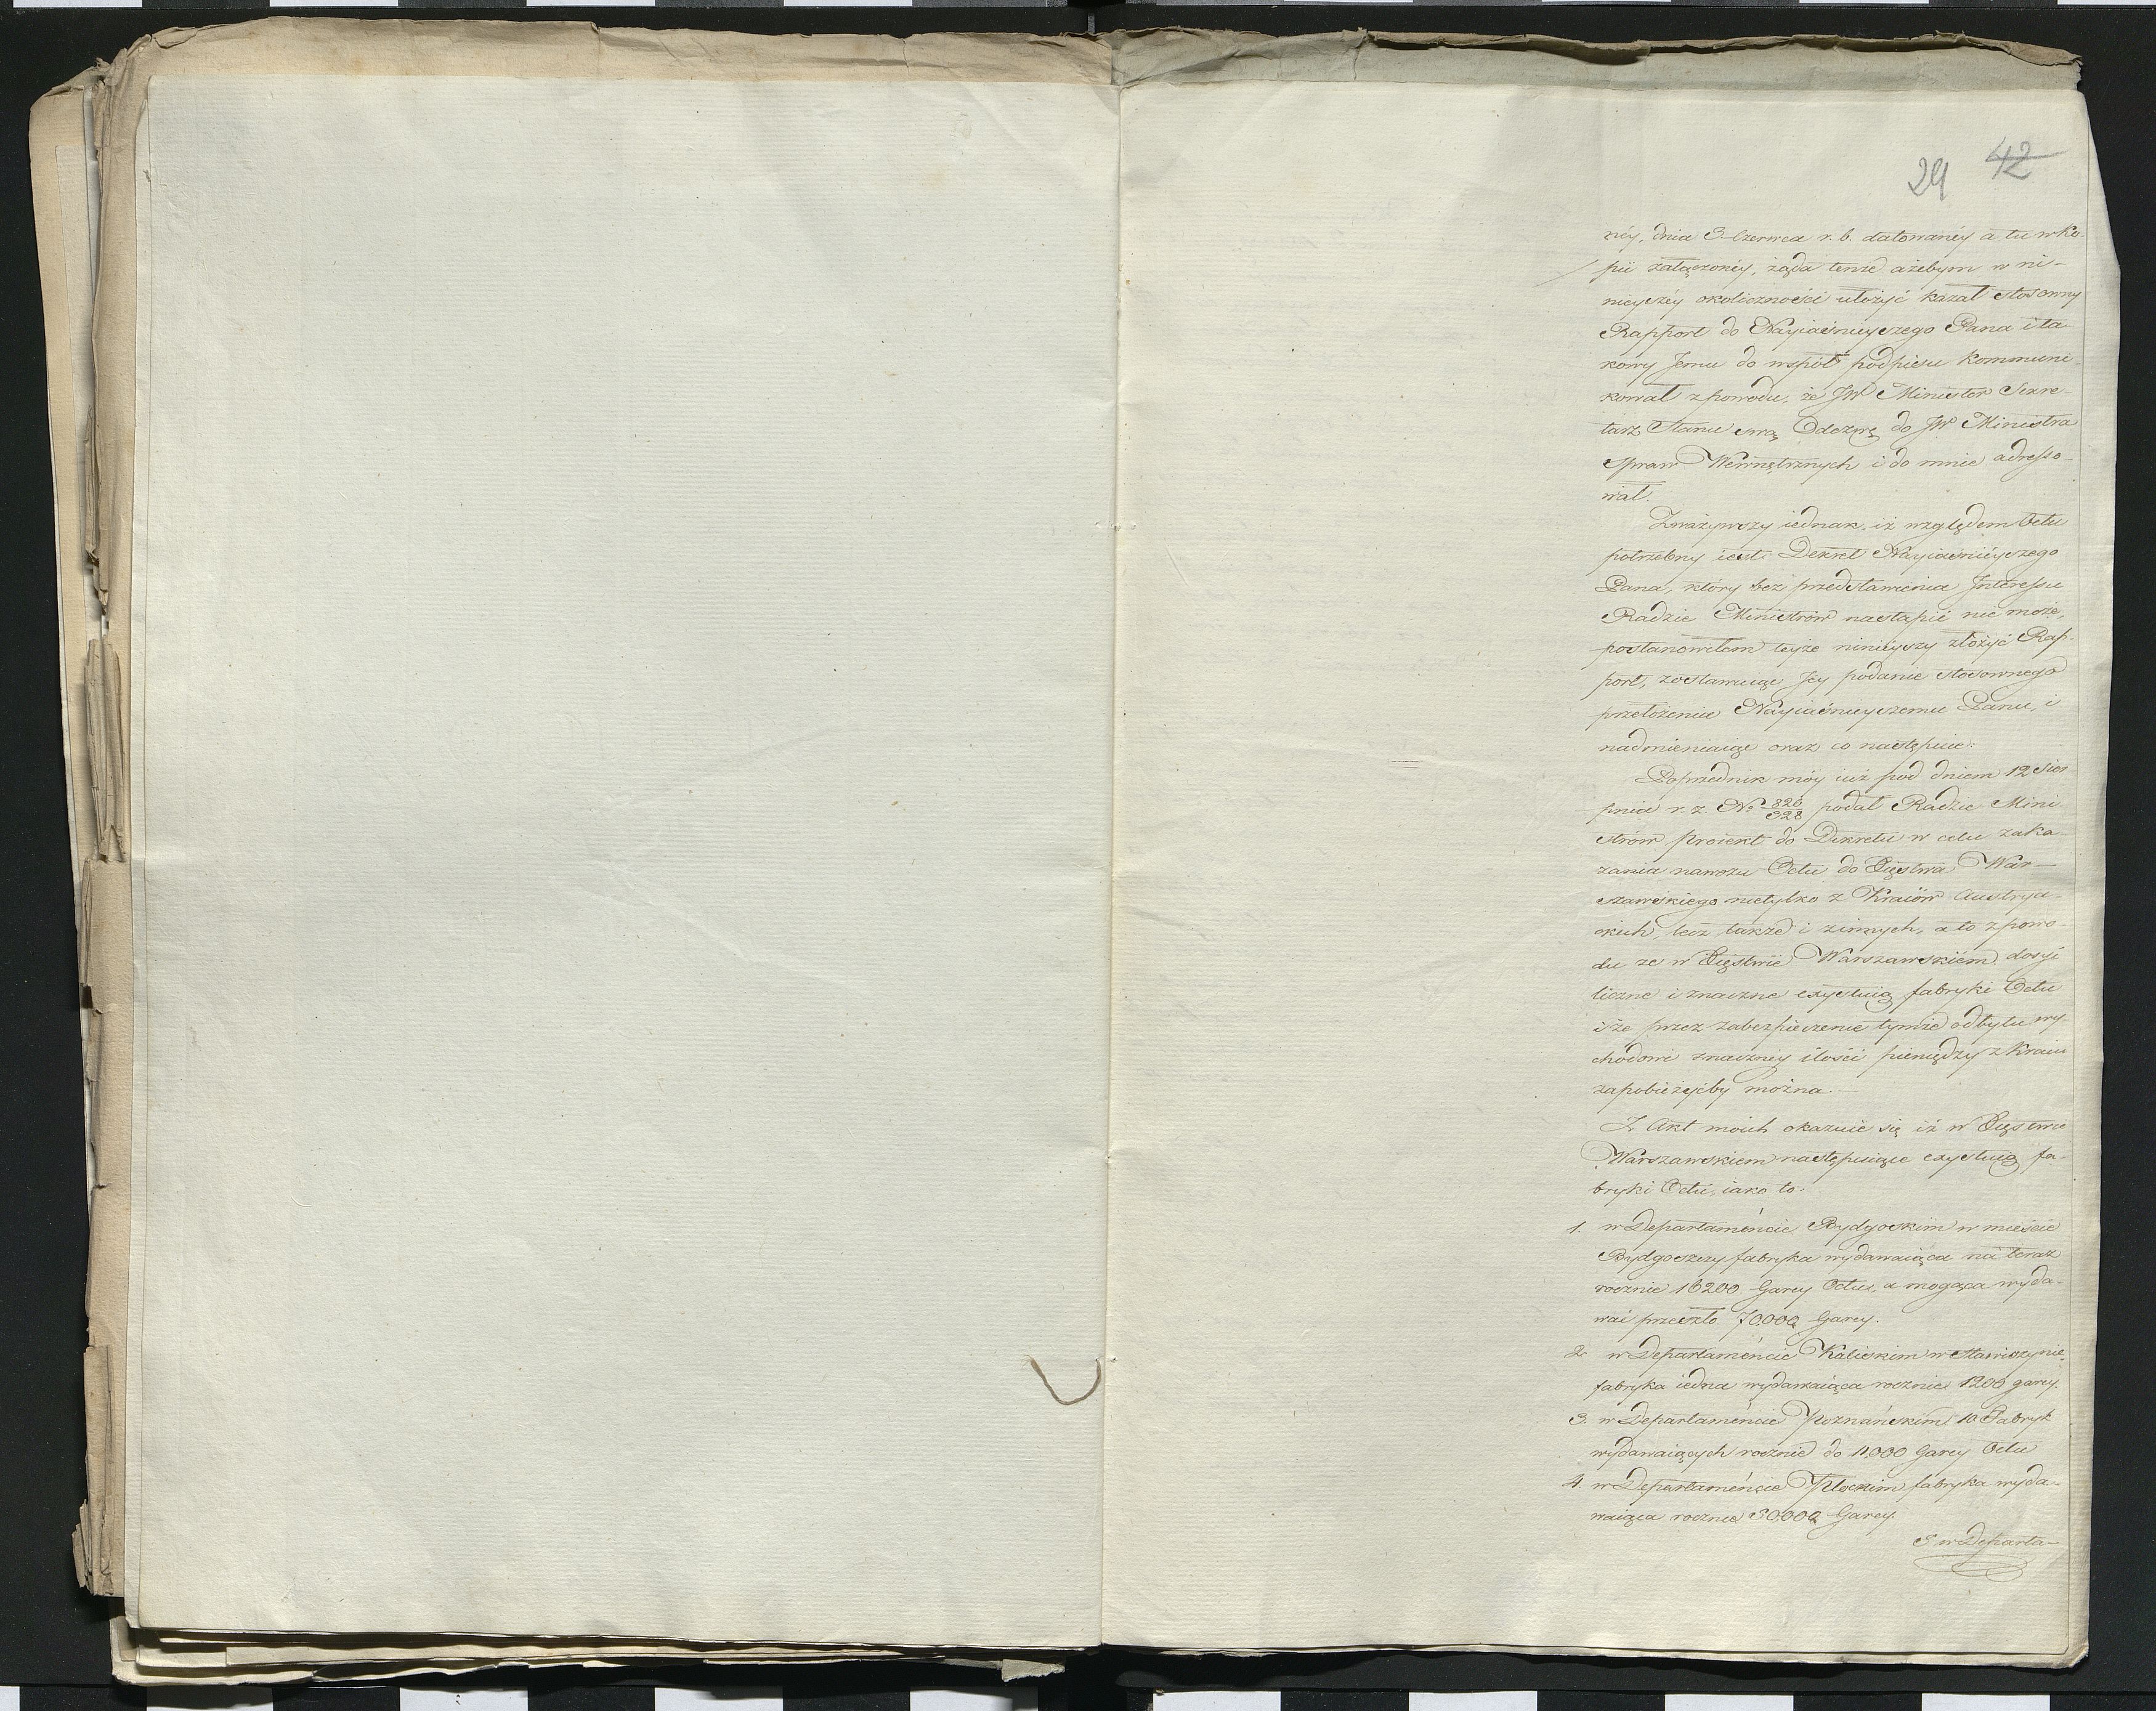 29 42
néy, dnia 3 Czerwca r. b. datowanéy a tu w ko-
pii załączonéy, żąda tenże ażebym w ni-
nieyszéy okoliczności ułożyć kazał stosowny
Rapport do Nayiaśnieyszego Pana i ta-
kowy Jemu do współ podpisu kommuni-
kował z powodu, że JW Minister Sekre-
tarz Stanu swą Odezwę do JW Ministra
Spraw Wewnętrznych i do mnie adresso-
wał.
Zważywszy iednak, iż względem Octu
potrzebny iest Dekret Nayiaśniéyszego
Pana, który bez przedstawienia Interessu
Radzie Ministrów nastąpić nie może,
postanowiłem teyże ninieyszy złożyć Rap-
port, zostawuiąc Jey podanie stosownego
przełożenia Nayiaśnieyszemu Panu, i
nadmieniaiąc oraz co następuie:
Poprzednik móy iuż pod dniem 12 Sier-
pnia r. z. No 820/328 podał Radzie Mini-
strów Proiekt do Dekretu w celu zaka-
zania nawozu Octu do Xięstwa War-
szawskiego nietylko z Kraiów Austrya-
ckich, lecz także i innych, a to z powo-
du ze w Xięstwie Warszawskiém dosyć
liczne i znaczne exystuią fabryki Octu
i że przez zabezpieczenie tymże odbytu wy-
chodowi znacznéy ilości pieniędzy z Kraiu
zapobieżyćby można.—
Z Akt moich okazuie się iż w Xięstwie
Warszawskiem następuiące exystuią fa-
bryki Octu, iako to:
1. w Departamencie Bydgoskim w mieście
Bydgoszczy fabryka wydawaiąca na teraz
rocznie 16200 Garcy Octu, a mogąca wyda-
wać przeszło 70,000 Garcy.
2. w Departamencie Kaliskim w Stawiszynie
fabryka iedna wydawaiąca rocznie 1200 garcy.
3. w Departamencie Poznańskim 10 Fabryk
wydawaiących rocznie do 11,000 Garcy Octu
4. w Departamencie Płockim fabryka wyda-
waiąca rocznie 30,000 Garcy.
5. w Departa-